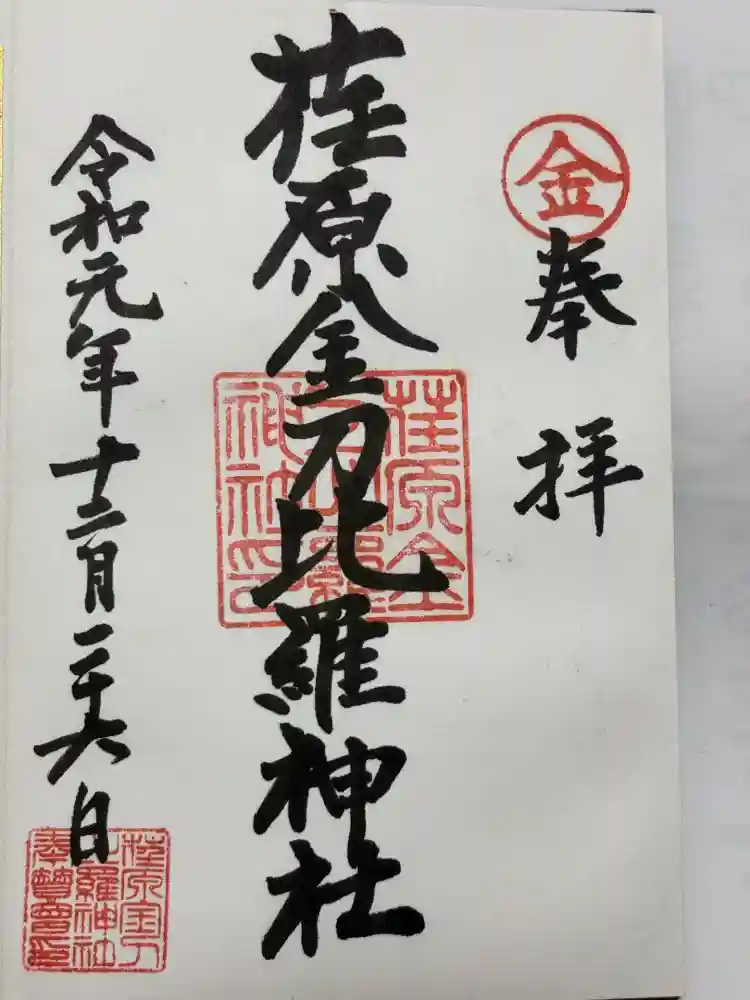 金
奉拝
荏原金刀比羅神社
荏原金
刀比羅
神社印
令和元年十二月二十六日
荏原金刀
比羅神社